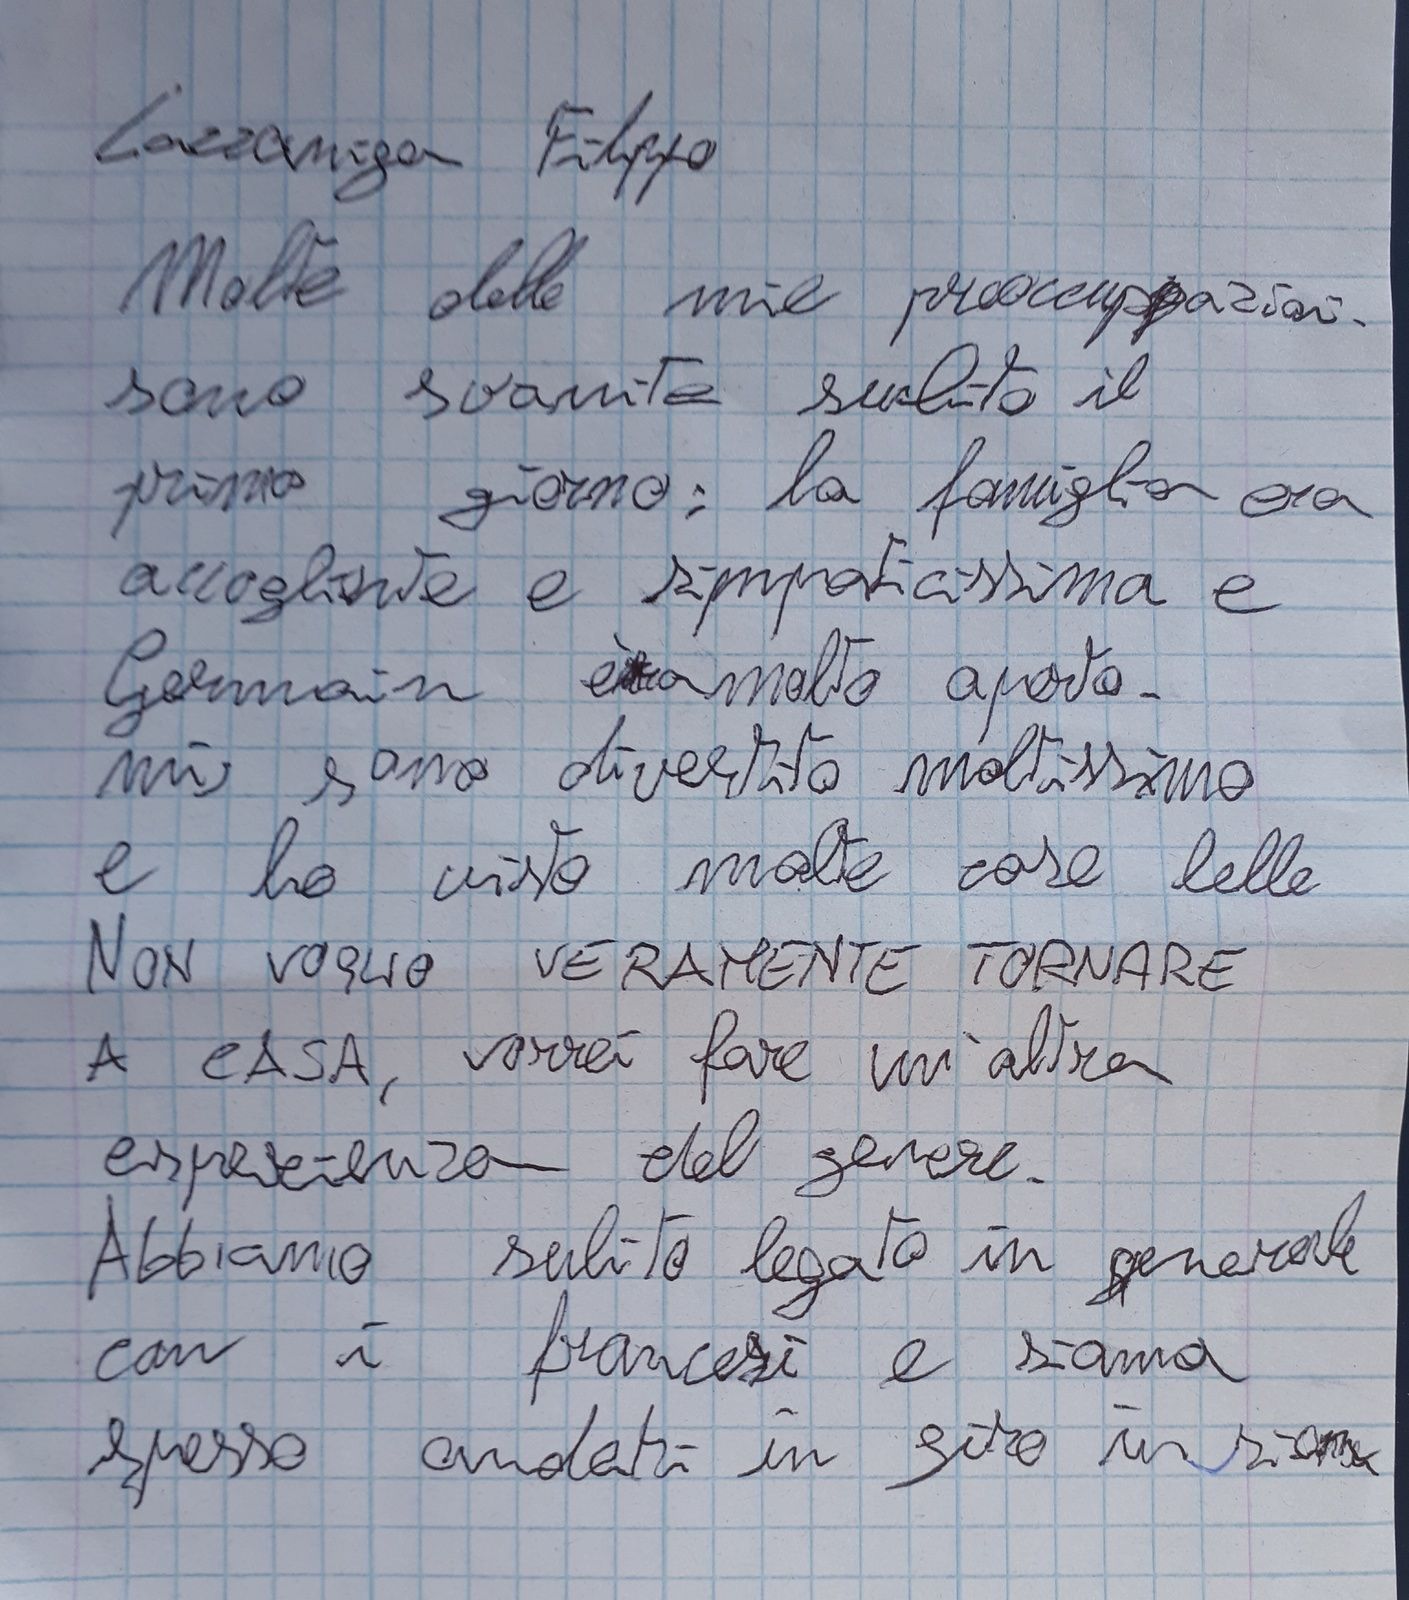 Cazzaniga Filippo
Molte delle mie preoccupazioni
sono svanite subito il
primo giorno: la famiglia era
accogliente e simpaticissima e
Germain era molto aperto.
mi sono divertito moltissimo
e ho visto molte cose belle
NON VOGLIO VERAMENTE TORNARE
A CASA, vorrei fare un'altra
esperienza del genere.
Abbiamo subito legato in generale
con i francesi e siamo
spesso andati in giro insieme